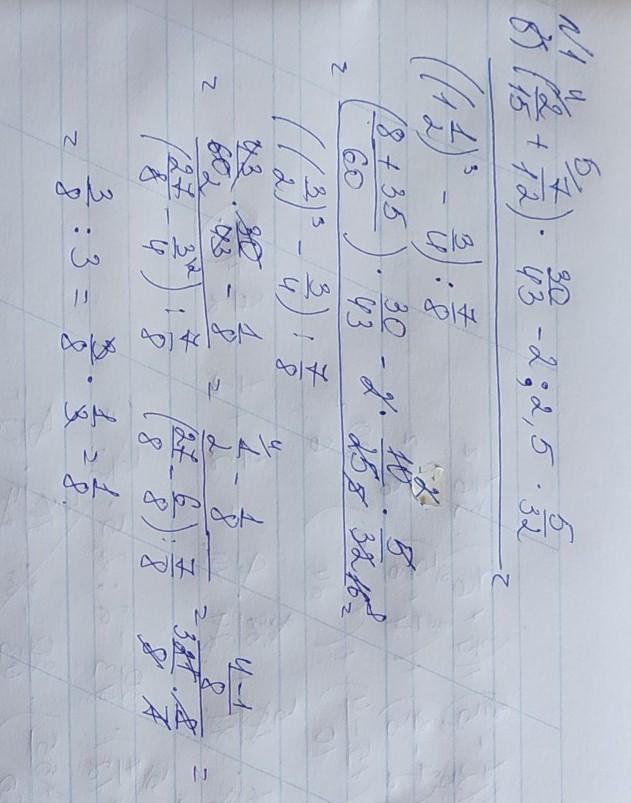 N1
б) (2/15 + 7/12) · 30/43 - 2 : 2,5 · 5/32
((1 1/2)³ - 3/4) : 7/8 =
= ((8 + 35)/60) · 30/43 - 2 · 10/25 · 5/32
((3/2)³ - 3/4) : 7/8 =
= 43/60 · 30/43 - 1/8 = 1/2 - 1/8 = (4-1)/8
(27/8 - 3/4) : 7/8 (27/8 - 6/8) : 7/8 = 21/8 · 8/7 =
= 3/8 : 3 = 3/8 · 1/3 = 1/8.